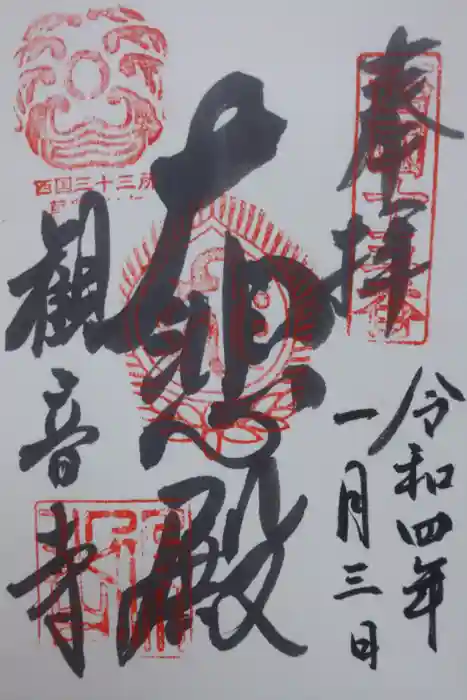 奉拝
令和四年
一月三日
大悲殿
西国三十三所
観音寺